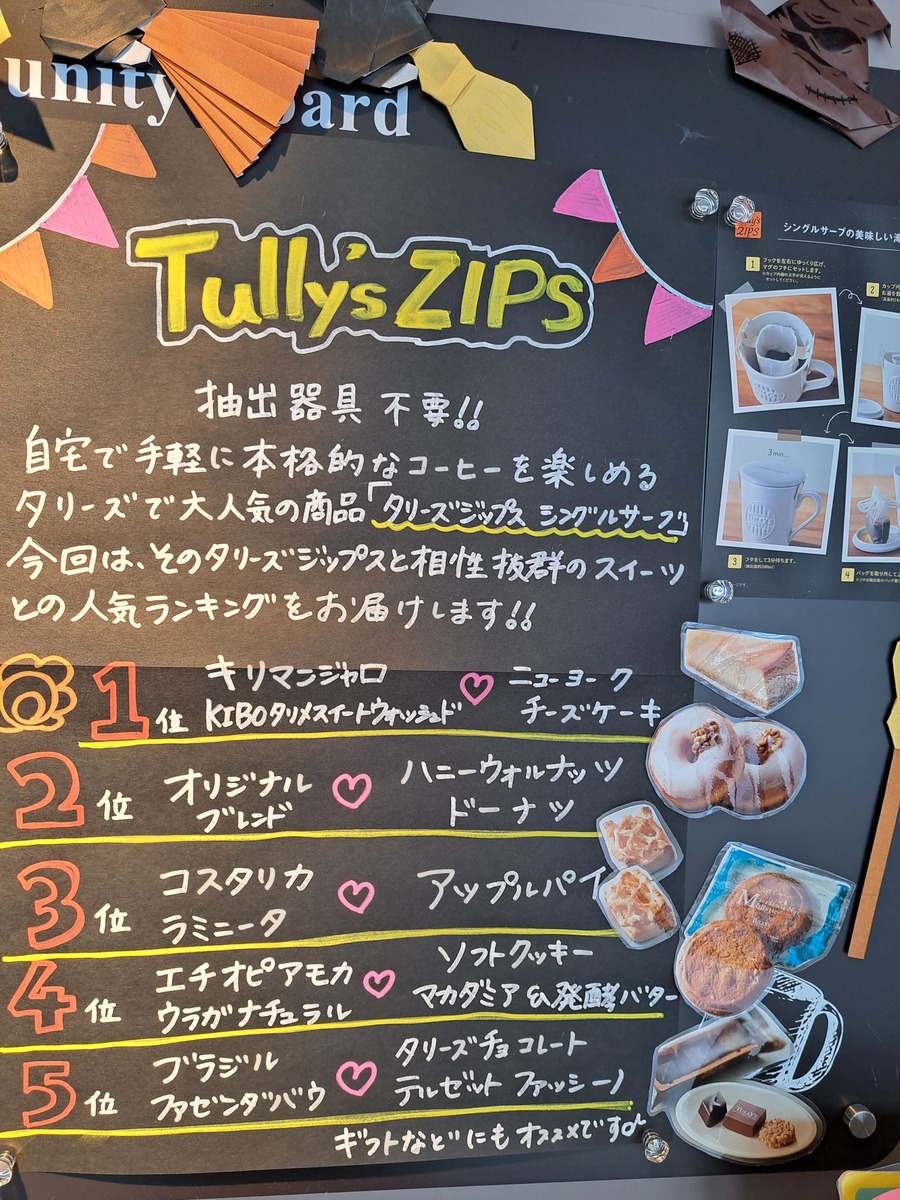 unity Board
Tully's ZIPs
抽出器具 不要!!
自宅で手軽に本格的なコーヒーを楽しめる
タリーズで大人気の商品「タリーズジップス シングルサーブ」
今回は、そのタリーズジップスと相性抜群のスイーツ
との人気ランキングをお届けします!!
1位 キリマンジャロ ♡ ニューヨーク
KIBOタリメスイートウォッシュド チーズケーキ
2位 オリジナル ♡ ハニーウォルナッツ
ブレンド ドーナツ
3位 コスタリカ ♡ アップルパイ
ラミニータ
4位 エチオピアモカ ♡ ソフトクッキー
ウラガナチュラル マカダミア&発酵バター
5位 ブラジル ♡ タリーズチョコレート
ファゼンダバウ テルゼット ファッシーノ
ギフトなどにもオススメです♪
ZIPS
シングルサーブの美味しい
1 フックを左右にゆっくり広げ、
マグのフチにセットします。
2 カップ内
3min...
3 フタをして3分待ちます。
4 バッグを取り外して
TULLY'S